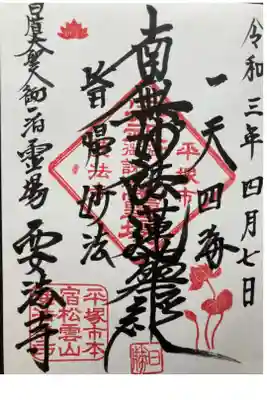 令和三年四月七日
一天四海
南無妙法蓮華経
皆帰妙法
日蓮大聖人御一泊霊場
要法寺
平塚市
平塚市本
宿松雲山
要法寺